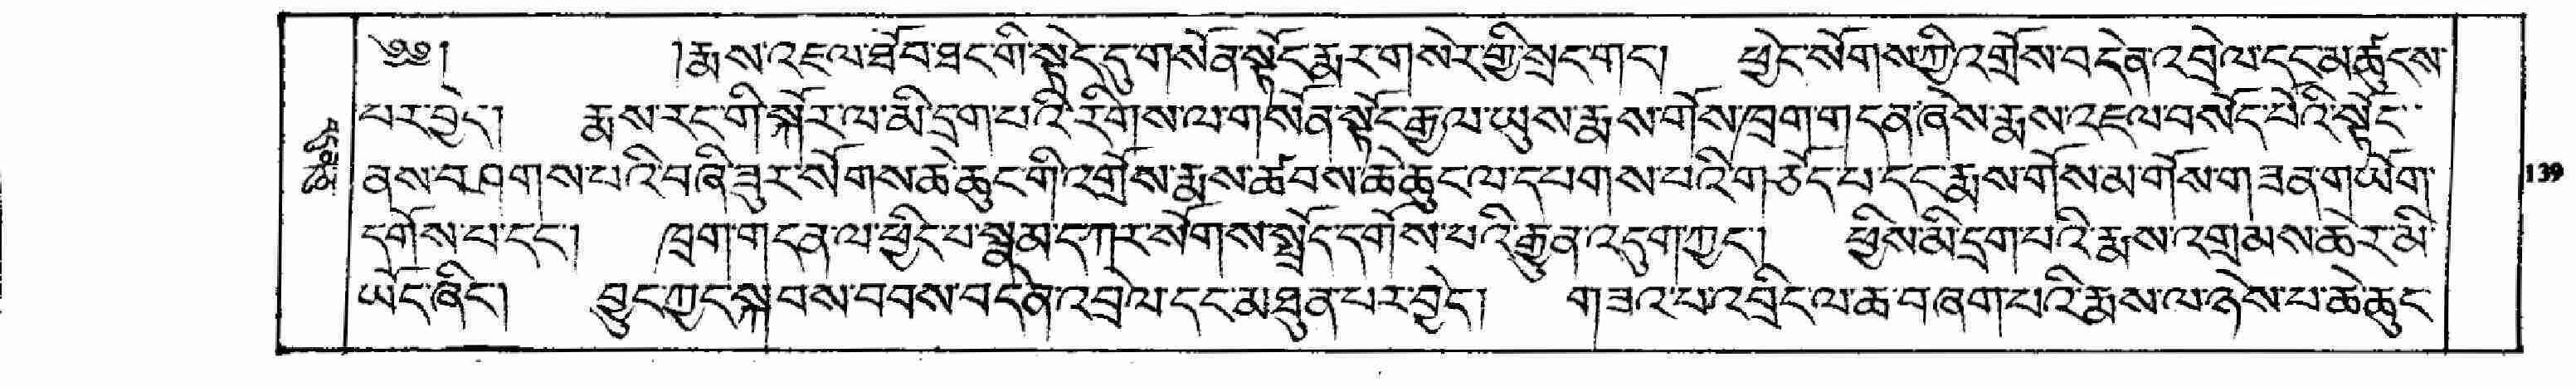 ༄༅། །རྨས་འཇལ་ཐོབ་ཐང་གི་སྟེང་དུ་གསོན་སྟོང་རྨར་གསེར་གྱི་སྲང་གང། ཕྱེང་སོགས་ཀྱི་འགྲོས་བདེན་འབྲེལ་དང་མཚུངས་
པར་བྱེད། རྨས་རང་གི་སྐོར་ལ་མི་དྲག་པའི་རིགས་ལ་གསོན་སྟོང་རྒྱལ་ཡུས་རྨས་གོས་ཁྲག་གདན་ཞེས་རྨས་འཇལ་བསོད་པའི་སྟོང་
ནས་བཤགས་པའི་བཞི་ཟུར་སོགས་ཆེ་ཆུང་གི་འགྲོས་རྨས་ཚབས་ཆེ་ཆུང་ལ་དཔགས་པའི་གཅོད་པ་དང་རྨས་གོས་མ་གོས་གཟན་གཡོག་
དགོས་པ་དང་། ཁྲག་གདན་ལ་ཕྱིང་པ་སྣམ་དཀར་སོགས་སྤྲོད་དགོས་པའི་རྒྱུན་འདུག་ཀྱང་། ཕྱིས་མི་དྲག་པའི་རྨས་འགྲམས་ཆེར་མི་
ཡོང་ཞིང་། བྱུང་ཀྱང་སྐབས་བབས་བདེན་འབྲེལ་དང་མཐུན་པར་བྱེད། གཟའ་པ་འབྲིང་ལ་ཆ་བཞག་པའི་རྨས་ལ་ཉེས་པ་ཆེ་ཆུང
139